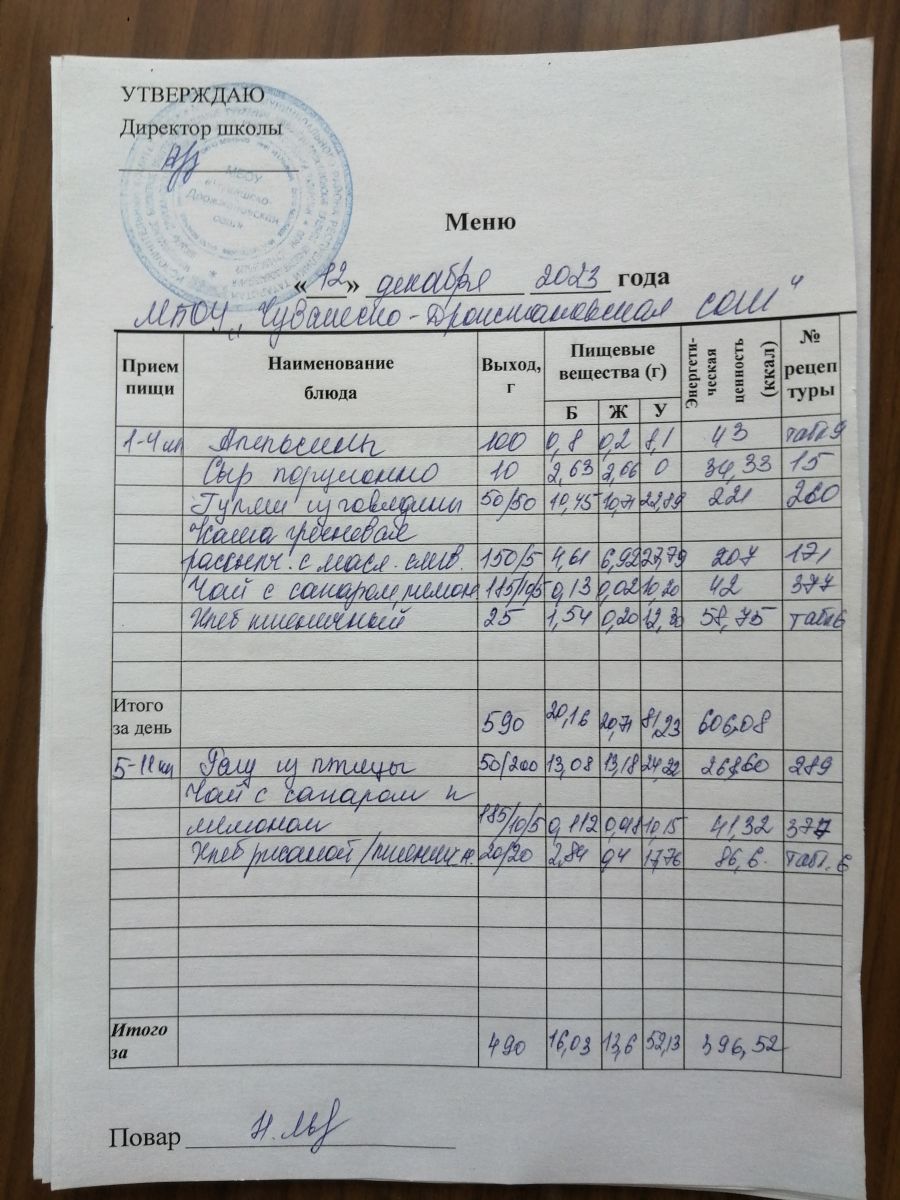 УТВЕРЖДАЮ
Директор школы
МБОУ
Меню
«12» декабря 2023 года
МБОУ „Чувашско-Дрожжановская СОШ"
Прием пищи Наименование блюда Выход, г Пищевые вещества (г) Энергетическая ценность (ккал) № рецептуры
Б Ж У
1-4 кл Апельсины 100 0,8 0,2 8,1 43 табл 9
Сыр порционно 10 2,63 2,66 0 34,33 15
Гуляш из говядины 50/50 10,45 10,71 22,89 221 260
Каша гречневая
рассыпч. с масл. слив. 150/5 4,61 6,92 27,79 207 171
Чай с сахаром, лимон 185/10/5 0,13 0,02 10,20 42 377
Хлеб пшеничный 25 1,54 0,20 12,30 58,75 табл 6
Итого за день 590 20,16 20,71 81,23 606,08
5-11 кл Рагу из птицы 50/200 13,08 13,18 24,22 268,60 289
Чай с сахаром и
лимоном 185/10/5 0,112 10,15 41,32 377
Хлеб ржаной/пшеничн. 20/20 2,84 0,4 17,76 86,6 табл. 6
Итого за 490 16,03 13,6 52,13 396,52
Повар